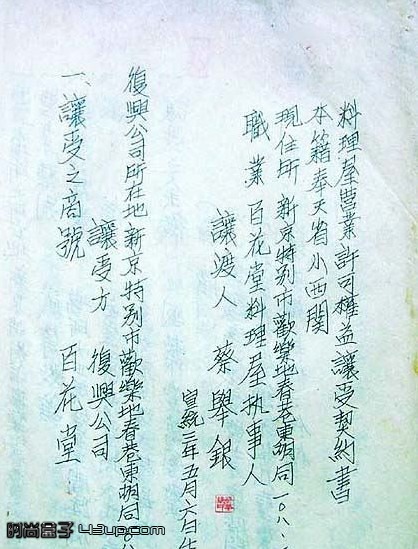 料理屋營業許可權益讓受契約書
本籍奉天省小西関
現住所 新京特别市歡樂地春巷東胡同一〇八.
職業百花堂料理屋执事人
讓渡人 蔡舉銀
宣統三年五月六日生
復興公司所在地 新京特别市歡樂地春巷東胡同一〇八
讓受方 復興公司
一、讓受之商號 百花堂
时尚盒子 43up.com